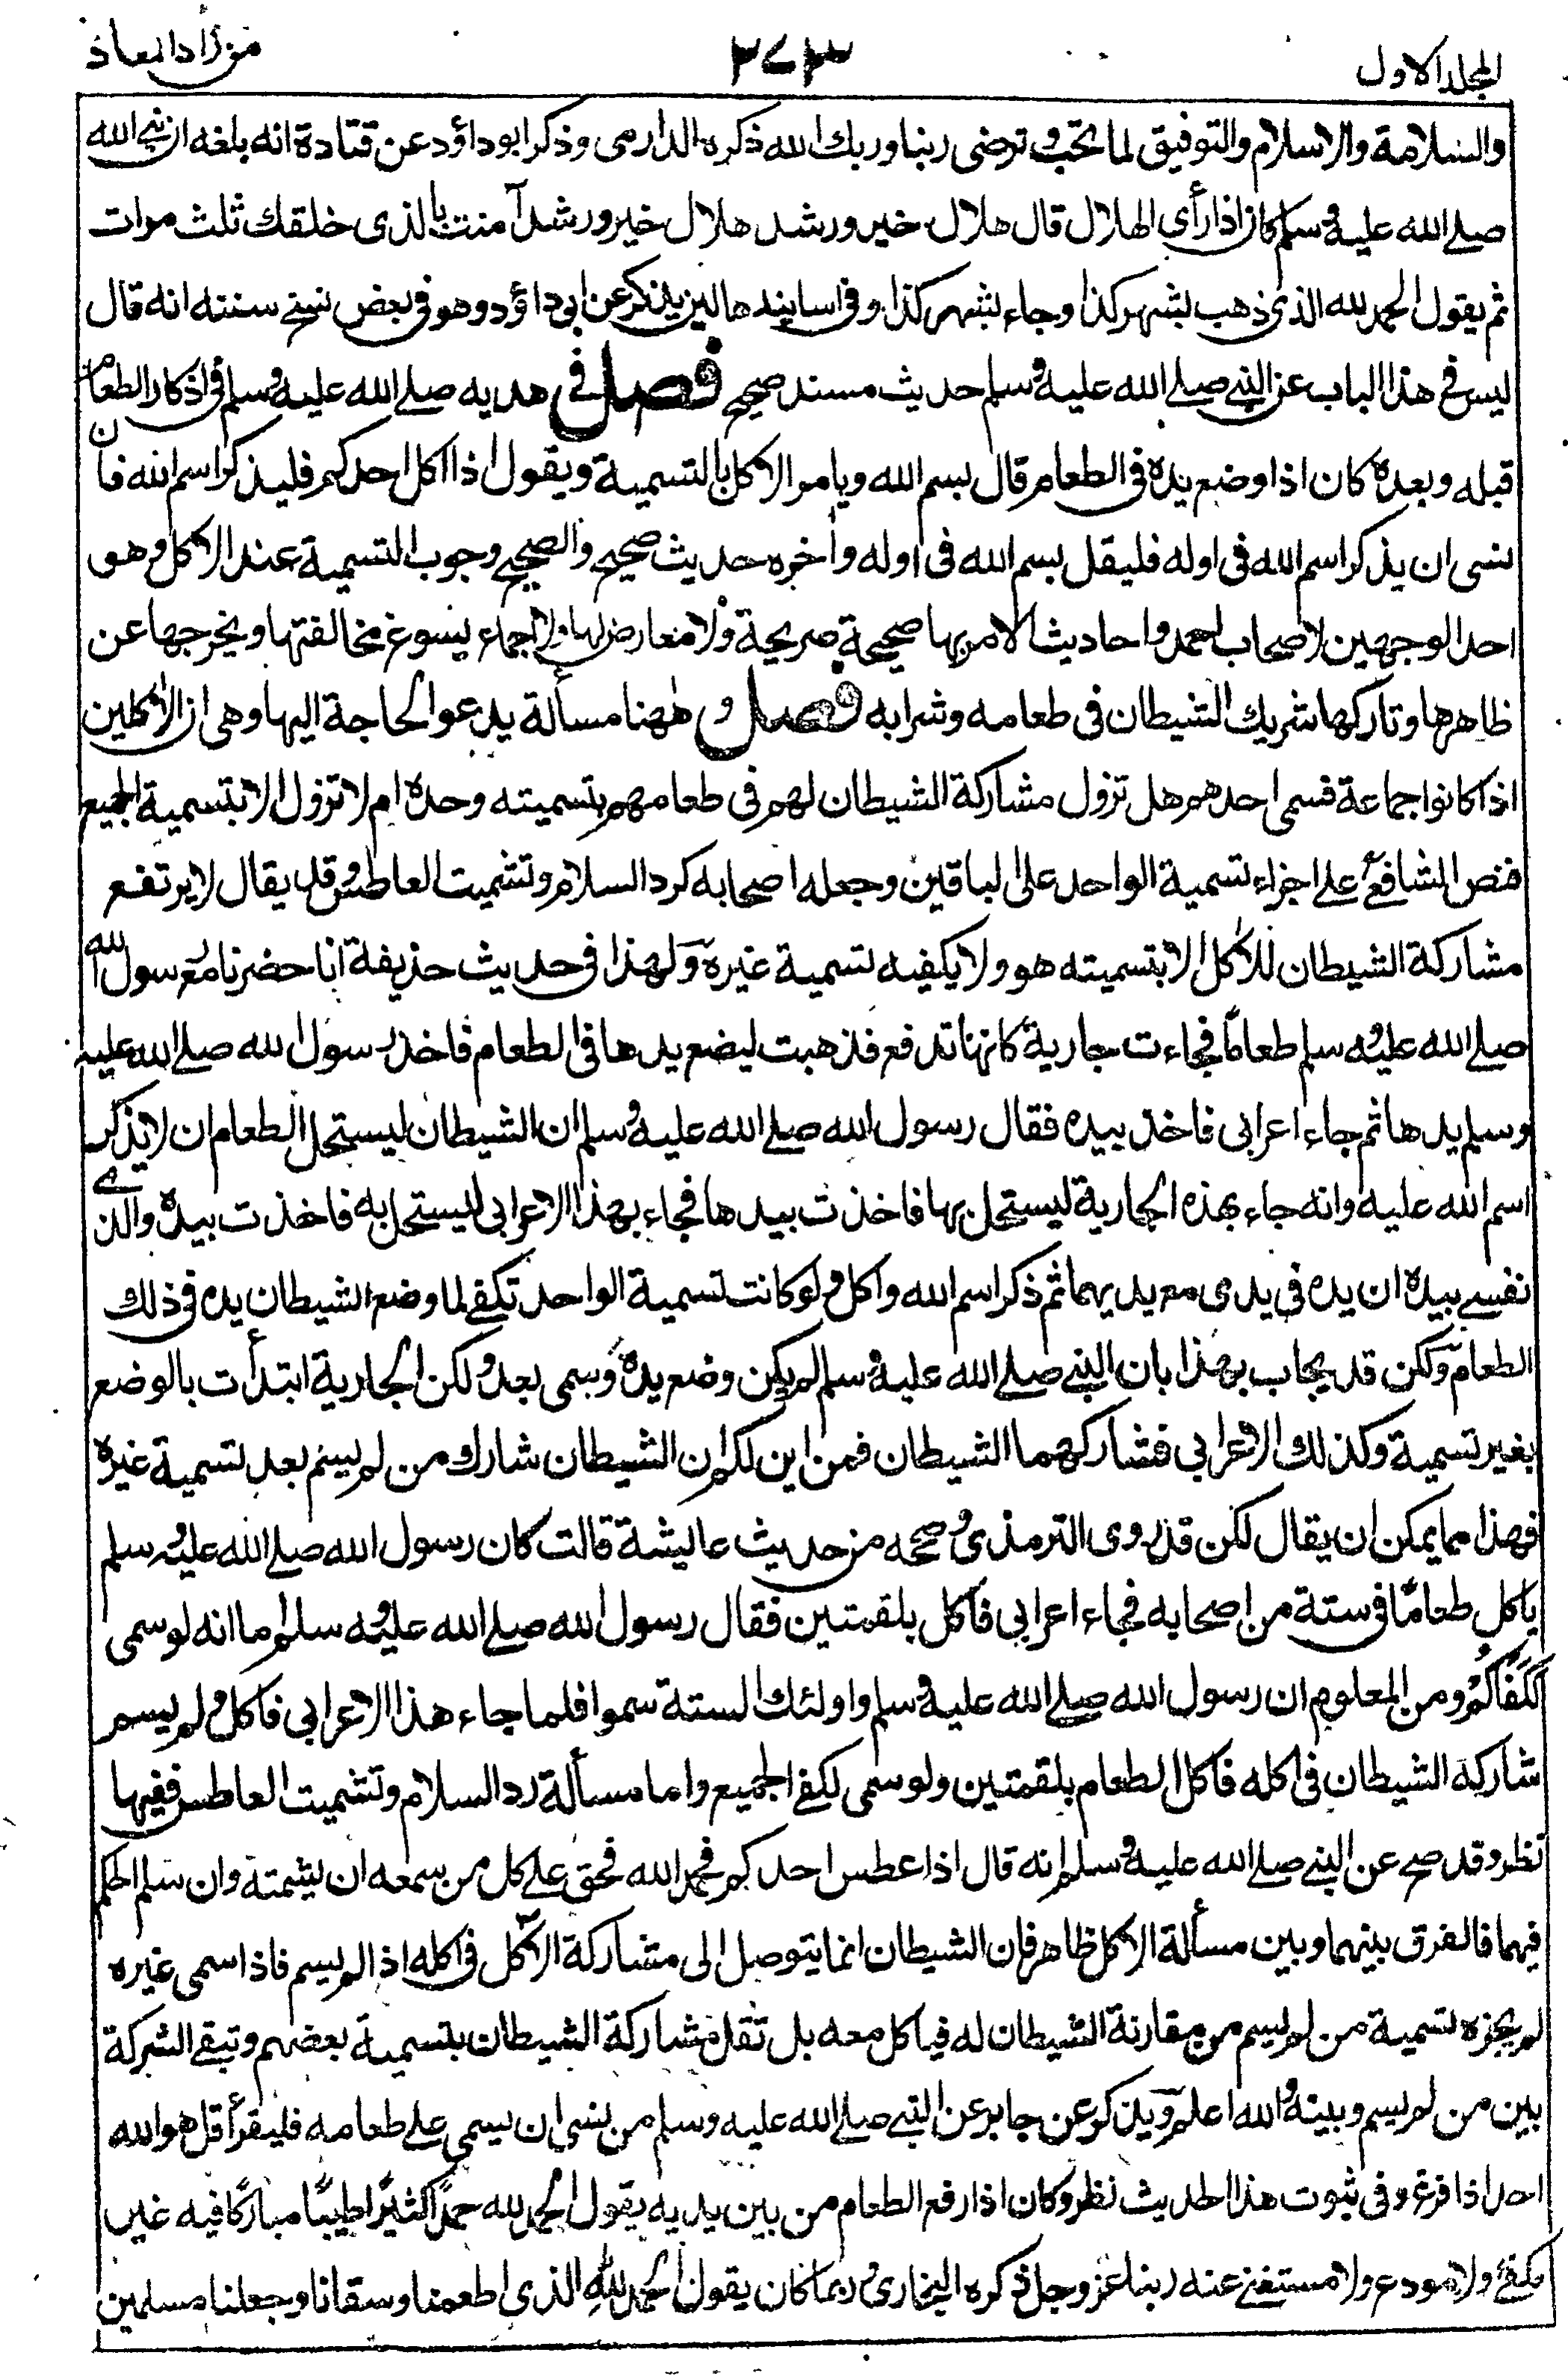 المجلد الاول ٣٧٣ من زاد المعاذ
والسلامة والاسلام والتوفيق لما تحب وترضى ربنا وربك الله ذكره الدارمى وذكر ابو داؤد عن قتادة انه بلغه ان نبى الله
صلى الله عليه وسلم كان اذا رأى الهلال قال هلال خير ورشد هلال خير ورشد آمنت بالذى خلقك ثلث مرات
ثم يقول الحمد لله الذى ذهب بشهر كذا وجاء بشهر كذا وفى اسانيدها لين يذكر عن ابى داؤد وهو فى بعض نسخ سننه انه قال
ليس فى هذا الباب عن النبى صلى الله عليه وسلم حديث مسند صحيح فصل فى هديه صلى الله عليه وسلم فى اذكار الطعام
قبله وبعده كان اذا وضع يده فى الطعام قال بسم الله ويامر الاكل بالتسمية ويقول اذا اكل احدكم فليذكر اسم الله فان
نسى ان يذكر اسم الله فى اوله فليقل بسم الله فى اوله وأخره حديث صحيح والصحيح وجوب التسمية عند الاكل وهو
احد الوجهين لاصحاب احمد واحاديث الامر بها صحيحة صريحة ولا معارض لها ولا اجماع يسوغ مخالفتها ويخرجها عن
ظاهرها وتاركها شريك الشيطان فى طعامه وشرابه فصل وههنا مسألة يدعو الحاجة اليها وهى ان الأكلين
اذا كانوا جماعة فسمى احدهم هل تزول مشاركة الشيطان لهم فى طعامهم بتسميته وحده ام لا تزول الا بتسمية الجميع
فنص الشافعى على اجزاء تسمية الواحد على الباقين وجعله اصحابه كرد السلام وتشميت العاطس وقد يقال لا يرتفع
مشاركة الشيطان للأكل الا بتسميته هو ولا يكفيه تسمية غيره ولهذا فى حديث حذيفة انا حضرنا مع رسول الله
صلى الله عليه وسلم طعاما فجاءت جارية كانها تدفع فذهبت ليضع يدها فى الطعام فاخذ رسول الله صلى الله عليه
وسلم يدها ثم جاء اعرابى فاخذ بيده فقال رسول الله صلى الله عليه وسلم ان الشيطان ليستحل الطعام ان لا يذكر
اسم الله عليه وانه جاء بهذه الجارية ليستحل بها فاخذت بيدها فجاء بهذا الاعرابى ليستحل به فاخذت بيده والذى
نفسى بيده ان يده فى يدى مع يديهما ثم ذكر اسم الله واكل ولو كانت تسمية الواحد تكفى لما وضع الشيطان يده فى ذلك
الطعام ولكن قد يجاب بهذا بان النبى صلى الله عليه وسلم لم يكن وضع يده وسمى بعد ولكن الجارية ابتدأت بالوضع
بغير تسمية وكذلك الاعرابى فشاركهما الشيطان فمن اين لكم ان الشيطان شارك من لم يسم بعد تسمية غيره
فهذا مما يمكن ان يقال لكن قد روى الترمذى وصححه من حديث عايشة قالت كان رسول الله صلى الله عليه وسلم
ياكل طعاما فى ستة من اصحابه فجاء اعرابى فاكل بلقمتين فقال رسول الله صلى الله عليه وسلم اما انه لو سمى
لكفاكم ومن المعلوم ان رسول الله صلى الله عليه وسلم واولئك الستة سموا فلما جاء هذا الاعرابى فاكل ولم يسم
شاركه الشيطان فى اكله فاكل الطعام بلقمتين ولو سمى لكفى الجميع واما مسألة رد السلام وتشميت العاطس ففيها
نظر وقد صح عن النبى صلى الله عليه وسلم انه قال اذا عطس احدكم فحمد الله فحق على كل من سمعه ان يشمته وان سلم الحكم
فيهما فالفرق بينهما وبين مسألة الاكل ظاهر فان الشيطان انما يتوصل الى مشاركة الآكل فى اكله اذا لم يسم فاذا سمى غيره
لم يجزه تسمية من لم يسم من مقارنة الشيطان له فياكل معه بل تقل مشاركة الشيطان بتسمية بعضهم وتبقى الشركة
بين من لم يسم وبينه والله اعلم ويذكر عن جابر عن النبى صلى الله عليه وسلم من نسى ان يسمى على طعامه فليقرأ قل هو الله
احد اذا فرغ وفى ثبوت هذا الحديث نظر وكان اذا رفع الطعام من بين يديه يقول الحمد لله حمدًا كثيرًا طيبًا مباركًا فيه غير
مكفئ ولا مودع ولا مستغنى عنه ربنا عز وجل ذكره البخارى وربما كان يقول الحمد لله الذى اطعمنا وسقانا وجعلنا مسلمين